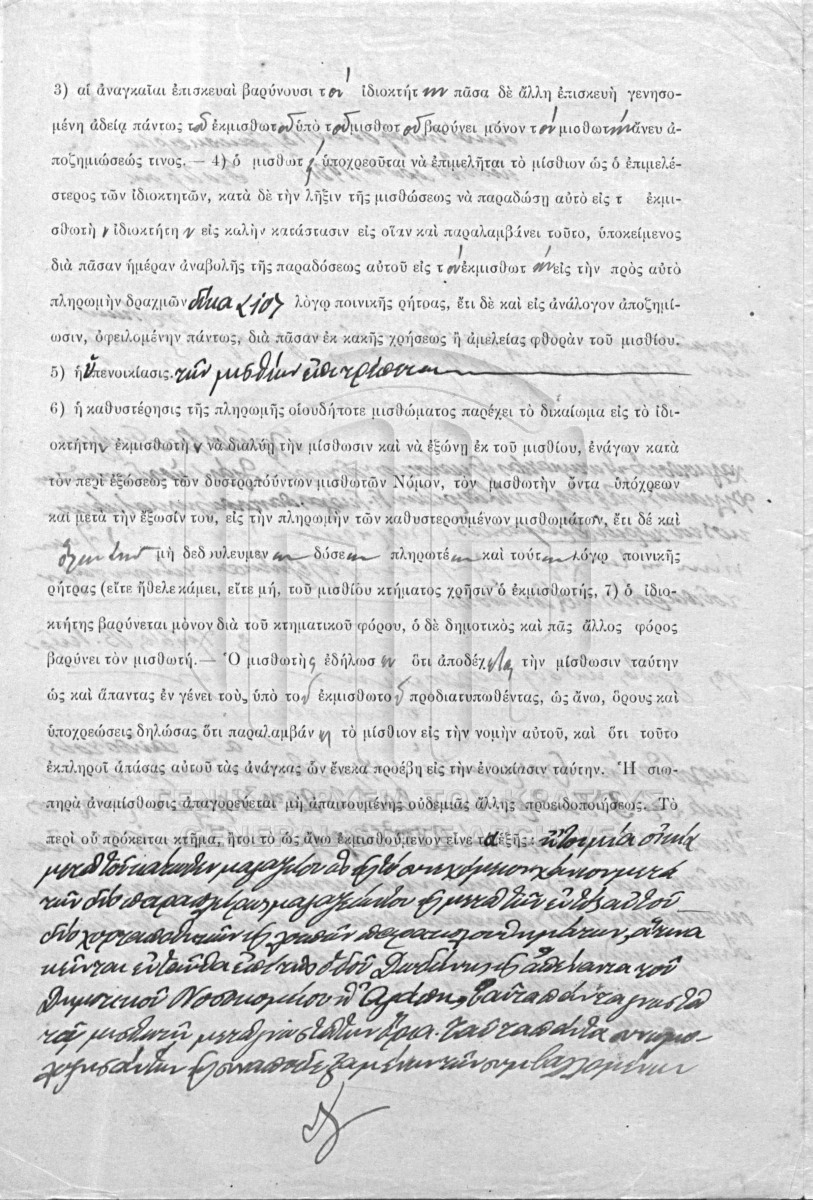 3) αἱ ἀναγκαῖαι ἐπισκευαὶ βαρύνουσι τὸν ἰδιοκτήτην πᾶσα δὲ ἄλλη ἐπισκευὴ γενησο-
μένη ἀδείᾳ πάντως τοῦ ἐκμισθωτοῦ ὑπὸ τοῦ μισθωτοῦ βαρύνει μόνον τὸν μισθωτὴν ἄνευ ἀ-
ποζημιώσεώς τινος. — 4) ὁ μισθωτὴς ὑποχρεοῦται νὰ ἐπιμελῆται τὸ μίσθιον ὡς ὁ ἐπιμελέ-
στερος τῶν ἰδιοκτητῶν, κατὰ δὲ τὴν λῆξιν τῆς μισθώσεως νὰ παραδώσῃ αὐτὸ εἰς τ ἐκμι-
σθωτὴν ἰδιοκτήτην εἰς καλὴν κατάστασιν εἰς οἵαν καὶ παραλαμβάνει τοῦτο, ὑποκείμενος
διὰ πᾶσαν ἡμέραν ἀναβολῆς τῆς παραδόσεως αὐτοῦ εἰς τὸν ἐκμισθωτὴν εἰς τὴν πρὸς αὐτὸ
πληρωμὴν δραχμῶν δέκα (10) λόγῳ ποινικῆς ρήτρας, ἔτι δὲ καὶ εἰς ἀνάλογον ἀποζημί-
ωσιν, ὀφειλομένην πάντως, διὰ πᾶσαν ἐκ κακῆς χρήσεως ἢ ἀμελείας φθορὰν τοῦ μισθίου.
5) ἡ ὑπενοικίασις τῶν μισθίων ἐπιτρέπεται
6) ἡ καθυστέρησις τῆς πληρωμῆς οἱουδήποτε μισθώματος παρέχει τὸ δικαίωμα εἰς τὸ ἰδι-
οκτήτην ἐκμισθωτὴν νὰ διαλύῃ τὴν μίσθωσιν καὶ νὰ ἐξώνῃ ἐκ τοῦ μισθίου, ἐνάγων κατὰ
τὸν περὶ ἐξώσεως τῶν δυστροπούντων μισθωτῶν Νόμον, τὸν μισθωτὴν ὄντα ὑπόχρεων
καὶ μετὰ τὴν ἔξωσίν του, εἰς τὴν πληρωμὴν τῶν καθυστερουμένων μισθωμάτων, ἔτι δὲ καὶ
μὴ δεδουλευμένων δόσεων πληρωτέων καὶ τούτων λόγῳ ποινικῆς
ρήτρας (εἴτε ἤθελε κάμει, εἴτε μή, τοῦ μισθίου κτήματος χρῆσιν ὁ ἐκμισθωτής, 7) ὁ ἰδιο-
κτήτης βαρύνεται μόνον διὰ τοῦ κτηματικοῦ φόρου, ὁ δὲ δημοτικὸς καὶ πᾶς ἄλλος φόρος
βαρύνει τὸν μισθωτή. — Ὁ μισθωτὴς ἐδήλωσεν ὅτι ἀποδέχεται τὴν μίσθωσιν ταύτην
ὡς καὶ ἅπαντας ἐν γένει τοὺς ὑπὸ τοῦ ἐκμισθωτοῦ προδιατυπωθέντας, ὡς ἄνω, ὅρους καὶ
ὑποχρεώσεις δηλώσας ὅτι παραλαμβάνει τὸ μίσθιον εἰς τὴν νομὴν αὐτοῦ, καὶ ὅτι τοῦτο
ἐκπληροῖ ἁπάσας αὐτοῦ τὰς ἀνάγκας ὧν ἕνεκα προέβη εἰς τὴν ἐνοικίασιν ταύτην. Ἡ σιω-
πηρὰ ἀναμίσθωσις ἀπαγορεύεται μὴ ἀπαιτουμένης οὐδεμιᾶς ἄλλης προειδοποιήσεως. Τὸ
περὶ οὗ πρόκειται κτῆμα, ἤτοι τὸ ὡς ἄνω ἐκμισθούμενον εἶνε τὰ ἑξῆς: ἤτοι μία οἰκία
μετὰ τοῦ κάτωθεν μαγαζείου
τῶν δύο μαγαζείων μετὰ τῶν
δύο ἅτινα
κεῖνται ἐνταῦθα ἐπὶ τῆς ὁδοῦ ἀπέναντι τοῦ
Δημοτικοῦ Νοσοκομείου ταῦτα πάντα γνωστὰ
τῷ μισθωτῇ ταῦτα πάντα συνομο-
λογησάντων καὶ συναποδεξαμένων τῶν συμβαλλομένων